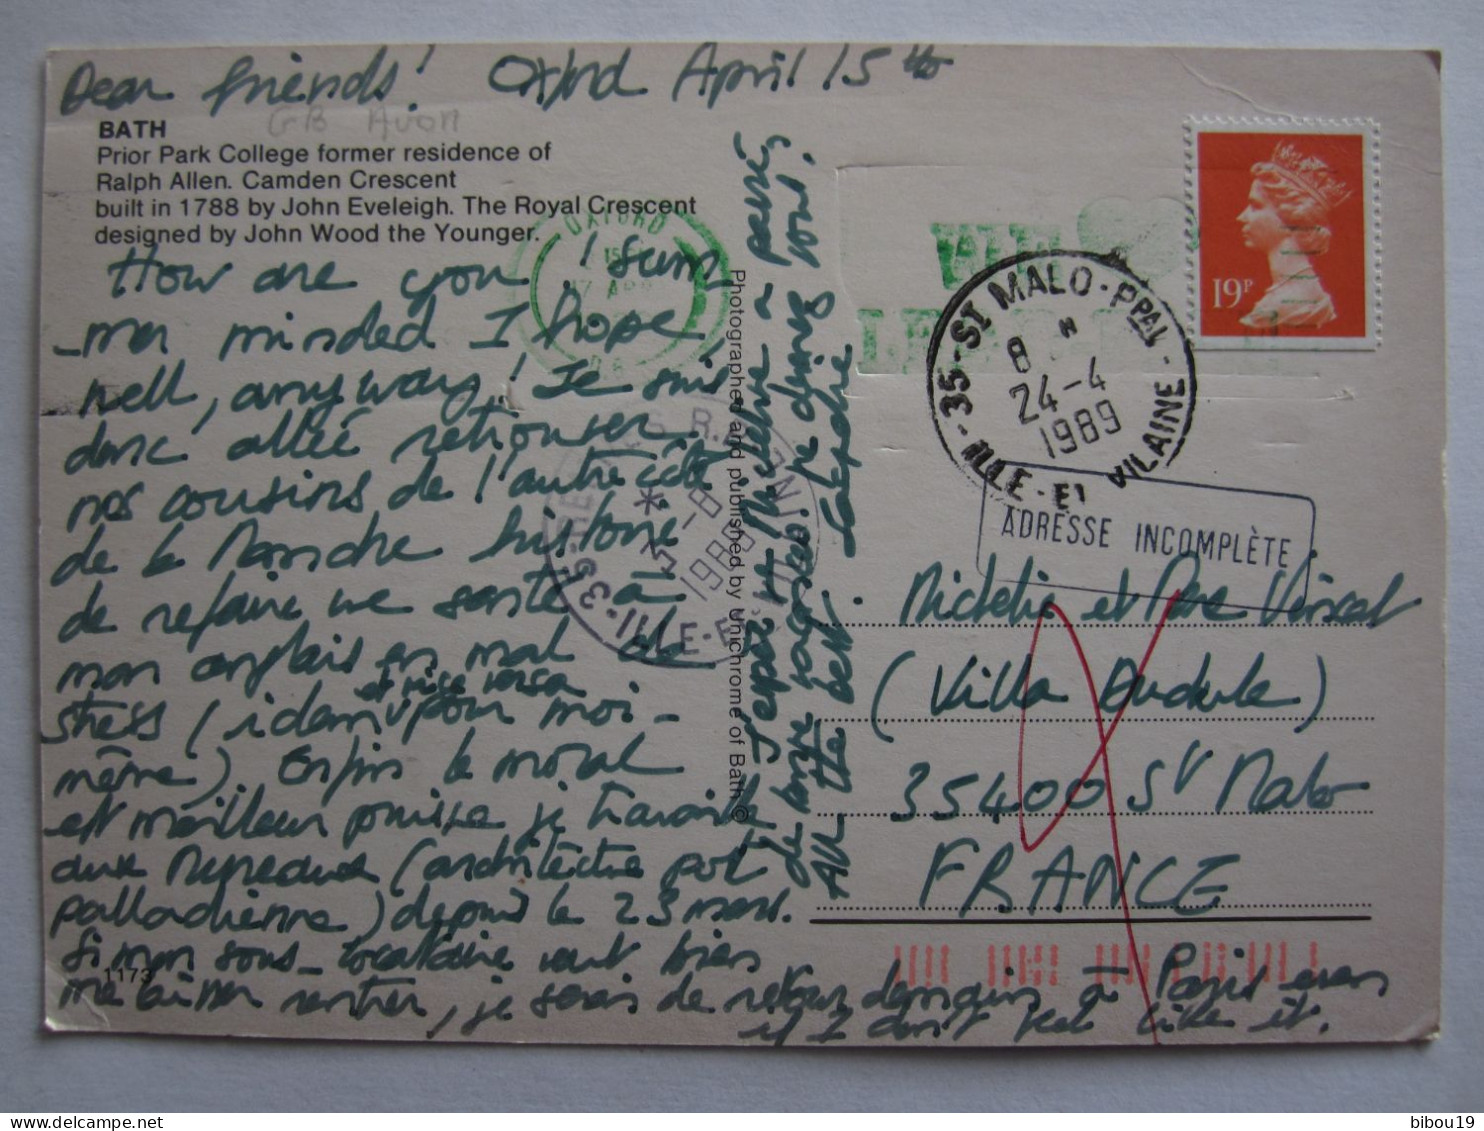 Dear friends! Oxford April 15th
GB Avon
BATH
Prior Park College former residence of
Ralph Allen. Camden Crescent
built in 1788 by John Eveleigh. The Royal Crescent
designed by John Wood the Younger.
How are you!
minded I hope
well, anyway! Je suis
donc allée retrouver
nos cousins de l'autre côté
de la Manche histoire
de refaire une santé à
mon anglais en mal de
stress (idem pour moi-
et vice versa
même). Enfin le moral
est meilleur puisque je travaille
aux (architecture
palladienne) depuis le 23 mars.
Si mon sous-locataire veut bien
me laisser rentrer, je serais de retour demain à Paris even
if I don't feel like it.
1173
J'espère à passer
de chez vous!
All the best.
Photographed and published by Unichrome of Bath ©
OXFORD
19P
35-ST MALO-PPAL-
8 H
24-4
1989
ILLE-ET VILAINE
ADRESSE INCOMPLÈTE
1989
35-ILLE-ET-
Michelle et
(Villa)
35400 St Malo
FRANCE
bibou19